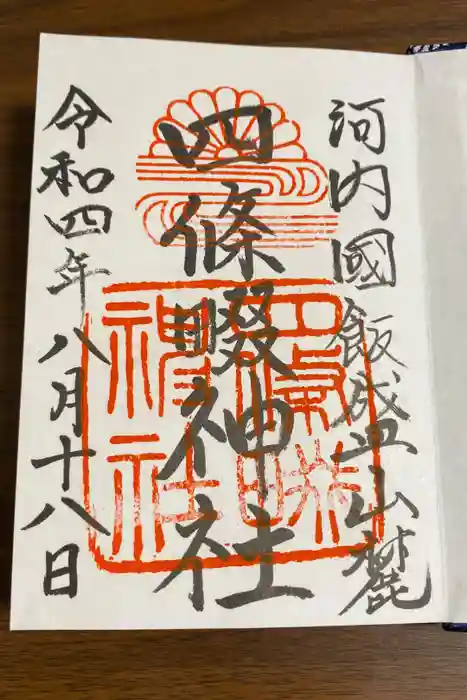 河内國飯盛山麓
四條畷神社
令和四年八月十八日
四條畷神社